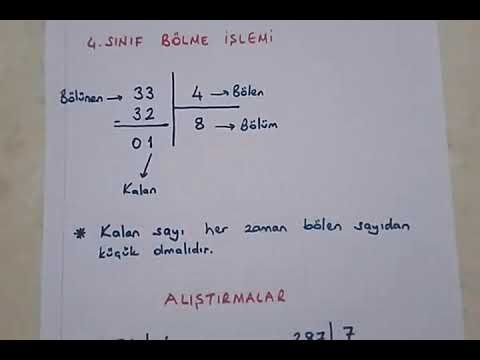 4. SINIF BÖLME İŞLEMİ
Bölünen → 33 4 → Bölen
- 32 8 → Bölüm
01
Kalan
* Kalan sayı her zaman bölen sayıdan
küçük olmalıdır.
ALIŞTIRMALAR
287 7